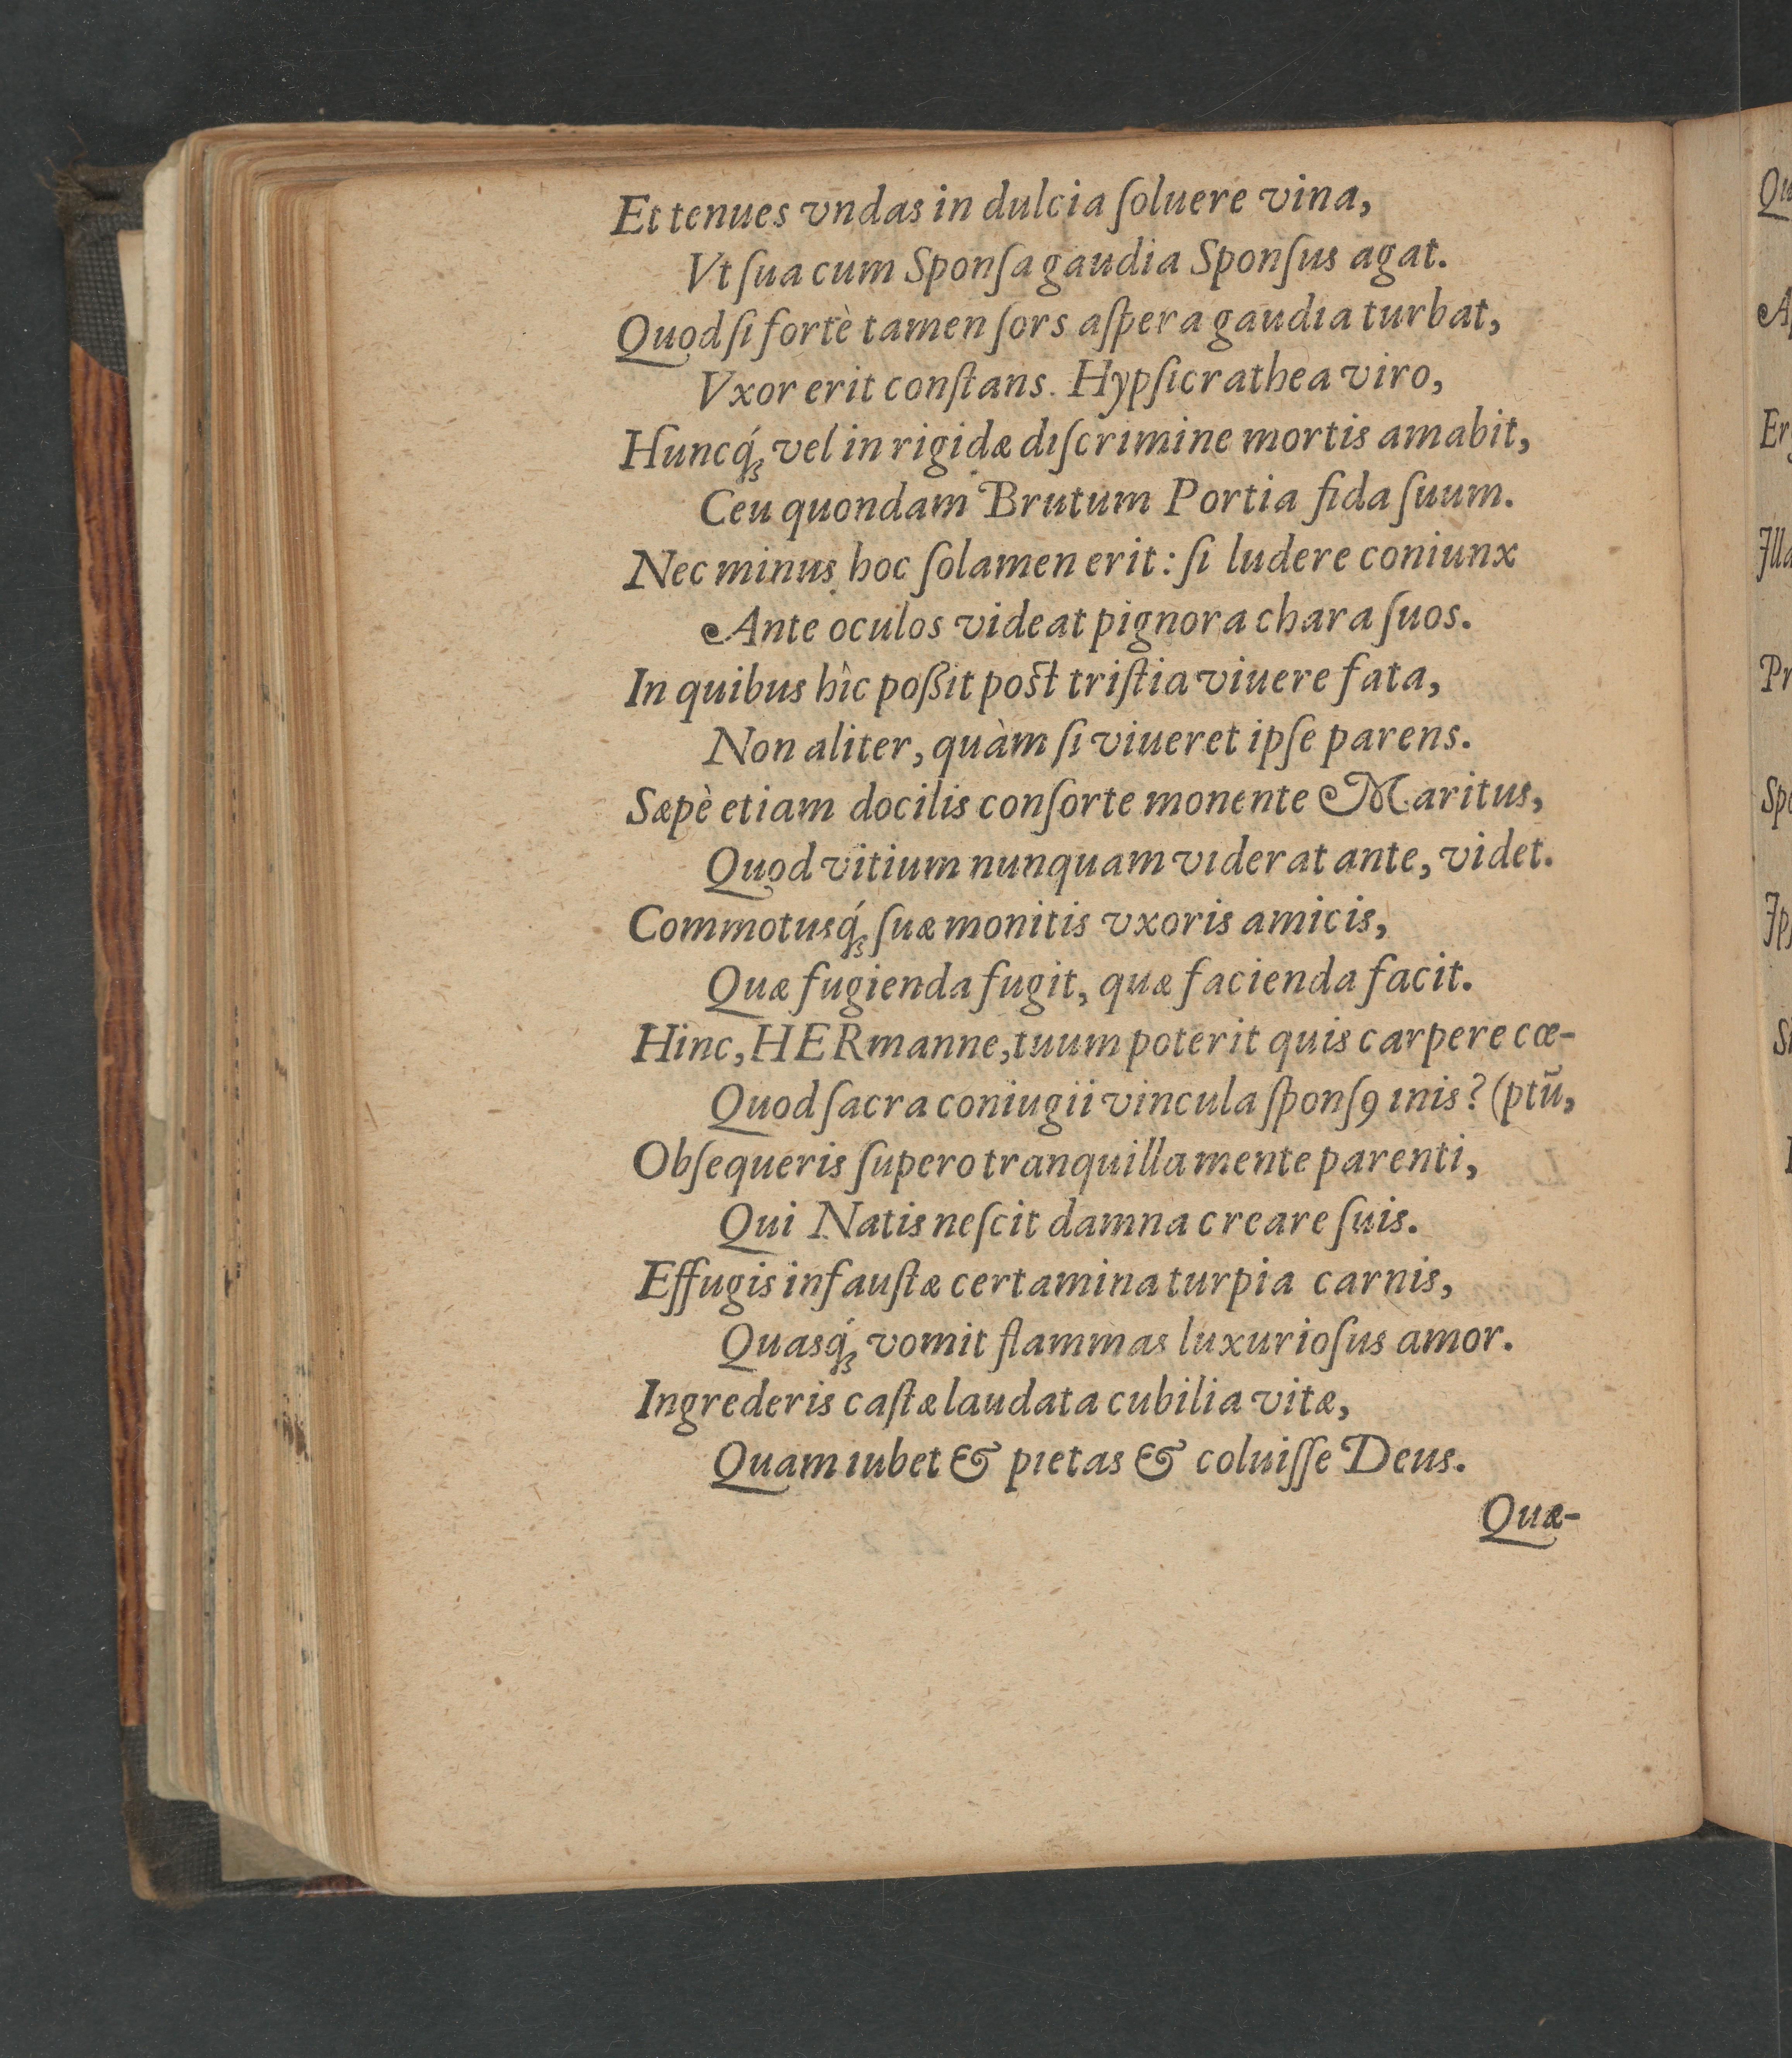 Et tenues vndas in dulcia ſoluere vina,
Vt ſua cum Sponſa gaudia Sponſus agat.
Quod ſi fortè tamen ſors aſpera gaudia turbat,
Vxor erit conſtans. Hypſicrathea viro,
Huncq́ꝫ vel in rigidæ diſcrimine mortis amabit,
Ceu quondam Brutum Portia fida ſuum.
Nec minus hoc ſolamen erit: ſi ludere coniunx
Ante oculos videat pignora chara ſuos.
In quibus hìc poßit poſt triſtia viuere fata,
Non aliter, quàm ſi viueret ipſe parens.
Sæpè etiam docilis conſorte monente Maritus,
Quod vitium nunquam viderat ante, videt.
Commotusq́ꝫ ſuæ monitis vxoris amicis,
Quæ fugienda fugit, quæ facienda facit.
Hinc, HERmanne, tuum poterit quis carpere cœ-
Quod ſacra coniugii vincula ſponſꝯ inis? (ptū,
Obſequeris ſupero tranquilla mente parenti,
Qui Natis neſcit damna creare ſuis.
Effugis infauſtæ certamina turpia carnis,
Quasq́ꝫ vomit flammas luxurioſus amor.
Ingrederis caſtæ laudata cubilia vitæ,
Quam iubet & pietas & coluiſſe Deus.
Quæ-
Qu
Er
Pr